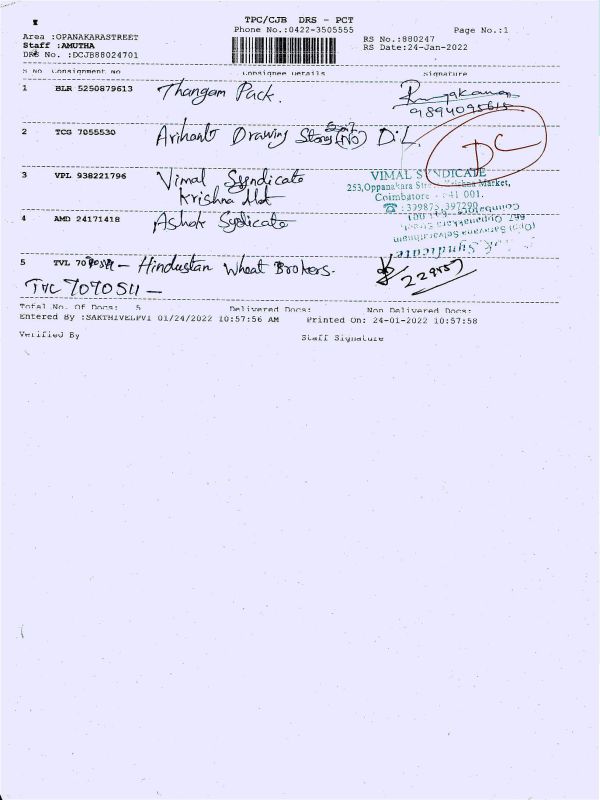 TPC/CJB DRS - PCT
Phone No.:0422-3505555
Page No.:1
Area :OPANAKARASTREET
RS No.:880247
Staff :AMUTHA
RS Date:24-Jan-2022
DRS No. :DCJB88024701
S No Consignment No Consignee Details Signature
1 BLR 5250879613 Thangam Pack.
9894095615
2 TCG 7055530 Arihant Drawing Stores (No) D.L.
DC
3 VPL 938221796 Vimal Syndicate
Krishna Mkt
VIMAL SYNDICATE
253,Oppanakara Street, Krishna Market,
Coimbatore - 641 001.
☎ :399875,397290
4 AMD 24171418 Ashok Syndicate
5 TVL 70 - Hindustan Wheat Brokers.
229457
TVC 7070511 -
Total No. Of Docs: 5 Delivered Docs: Non Delivered Docs:
Entered By :SAKTHIVELPV1 01/24/2022 10:57:56 AM Printed On: 24-01-2022 10:57:58
Verified By Staff Signature